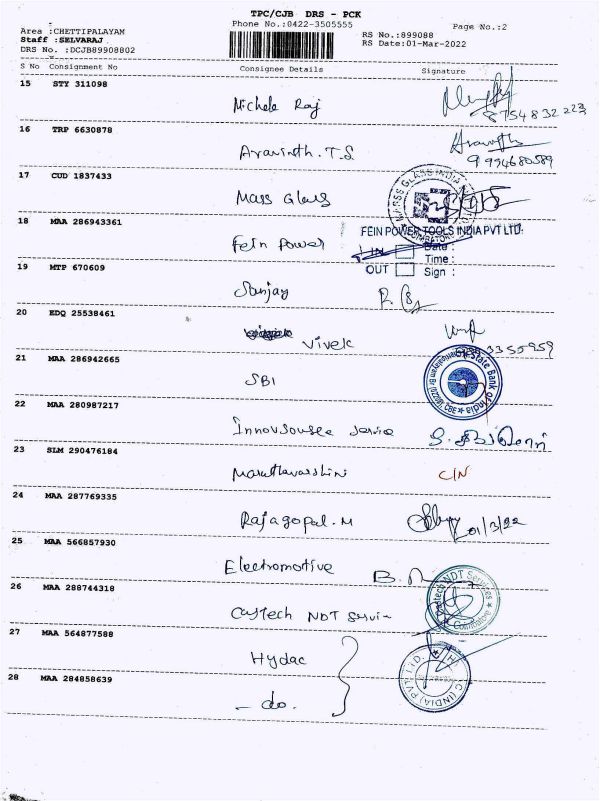 TPC/CJB DRS - PCK
Area :CHETTIPALAYAM Phone No.:0422-3505555 Page No.:2
Staff :SELVARAJ RS No.:899088
DRS No. :DCJB89908802 RS Date:01-Mar-2022
S No Consignment No Consignee Details Signature
15 STY 311098
Michele Raj 8754832223
16 TRP 6630878
Aravinth.T.S Aravinth
9994680589
17 CUD 1837433
Mass Glass
18 MAA 286943361
Fein Power FEIN POWER TOOLS INDIA PVT LTD.
IN Date :
Time :
OUT Sign :
19 MTP 670609
Sanjay
20 EDQ 25538461
Vivek 3355959
21 MAA 286942665
SBI State Bank of India
22 MAA 280987217
Innovsource Service
23 SLM 290476184
Marathavarshini C/N
24 MAA 287769335
Rajagopal.M 01/3/22
25 MAA 566857930
Electromotive
26 MAA 288744318
Castech NDT Servic Castech NDT Services Coimbatore
27 MAA 564877588
Hydac
28 MAA 284858639
- do.